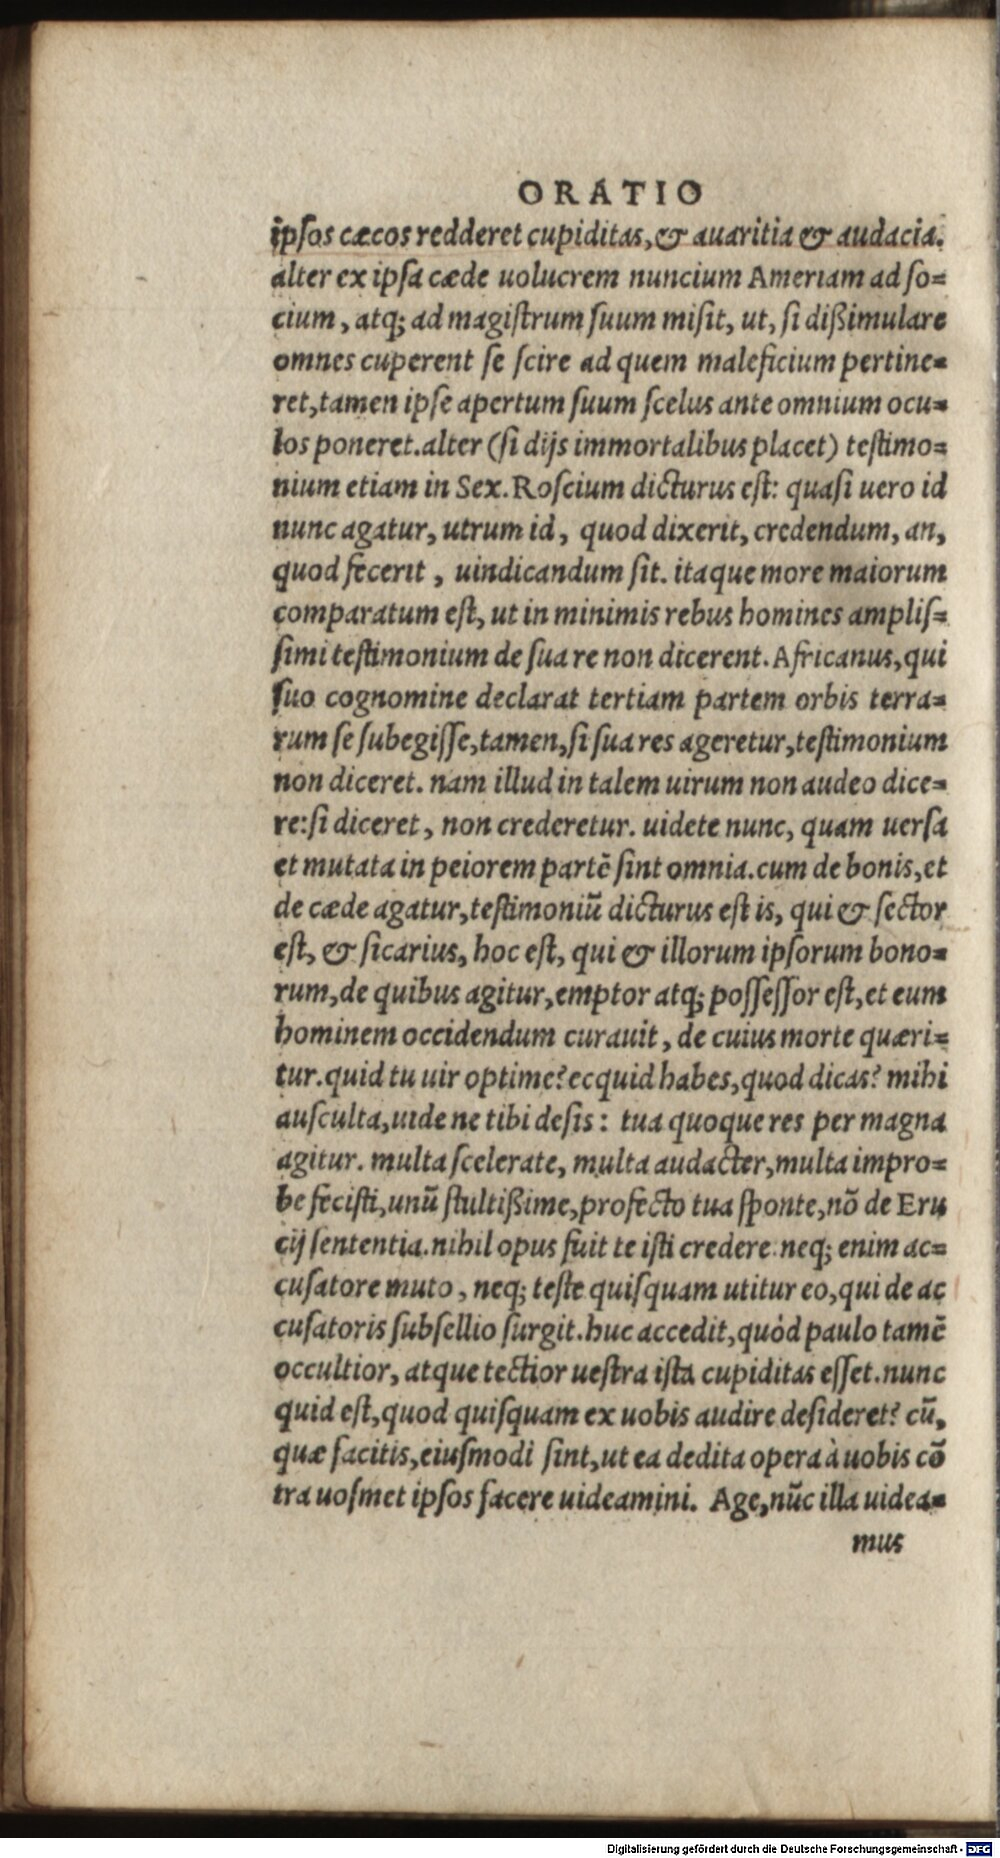 ORATIO
ipsos cæcos redderet cupiditas, & auaritia & audacia.
alter ex ipsa cæde uolucrem nuncium Ameriam ad so-
cium, atq; ad magistrum suum misit, ut, si dißimulare
omnes cuperent se scire ad quem maleficium pertine-
ret, tamen ipse apertum suum scelus ante omnium ocu-
los poneret. alter (si dijs immortalibus placet) testimo-
nium etiam in Sex. Roscium dicturus est: quasi uero id
nunc agatur, utrum id, quod dixerit, credendum, an,
quod fecerit, uindicandum sit. itaque more maiorum
comparatum est, ut in minimis rebus homines amplis-
simi testimonium de sua re non dicerent. Africanus, qui
suo cognomine declarat tertiam partem orbis terra-
rum se subegisse, tamen, si sua res ageretur, testimonium
non diceret. nam illud in talem uirum non audeo dice-
re: si diceret, non crederetur. uidete nunc, quam uersa
et mutata in peiorem partē sint omnia. cum de bonis, et
de cæde agatur, testimoniū dicturus est is, qui & sector
est, & sicarius, hoc est, qui & illorum ipsorum bono-
rum, de quibus agitur, emptor atq; possessor est, et eum
hominem occidendum curauit, de cuius morte quæri-
tur. quid tu uir optime? ecquid habes, quod dicas? mihi
ausculta, uide ne tibi desis: tua quoque res per magna
agitur. multa scelerate, multa audacter, multa impro-
be fecisti, unū stultißime, profecto tua sponte, nō de Eru
cij sententia. nihil opus fuit te isti credere. neq; enim ac-
cusatore muto, neq; teste quisquam utitur eo, qui de ac
cusatoris subsellio surgit. huc accedit, quòd paulo tamē
occultior, atque tectior uestra ista cupiditas esset. nunc
quid est, quod quisquam ex uobis audire desideret? cū,
quæ facitis, eiusmodi sint, ut ea dedita opera à uobis cō
tra uosmet ipsos facere uideamini. Age, nūc illa uidea-
mus
Digitalisierung gefördert durch die Deutsche Forschungsgemeinschaft - DFG